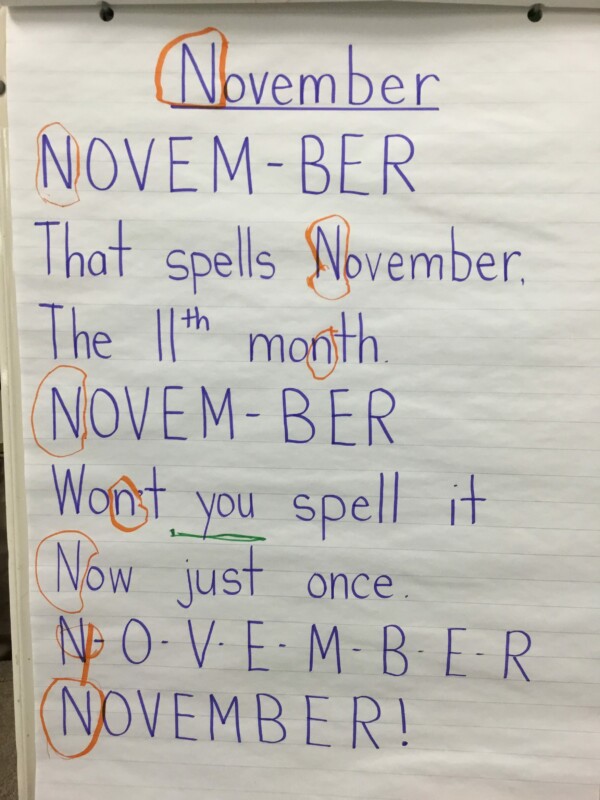 November
NOVEM-BER
That spells November.
The 11th month.
NOVEM-BER
Won't you spell it
Now just once.
N-O-V-E-M-B-E-R
NOVEMBER!